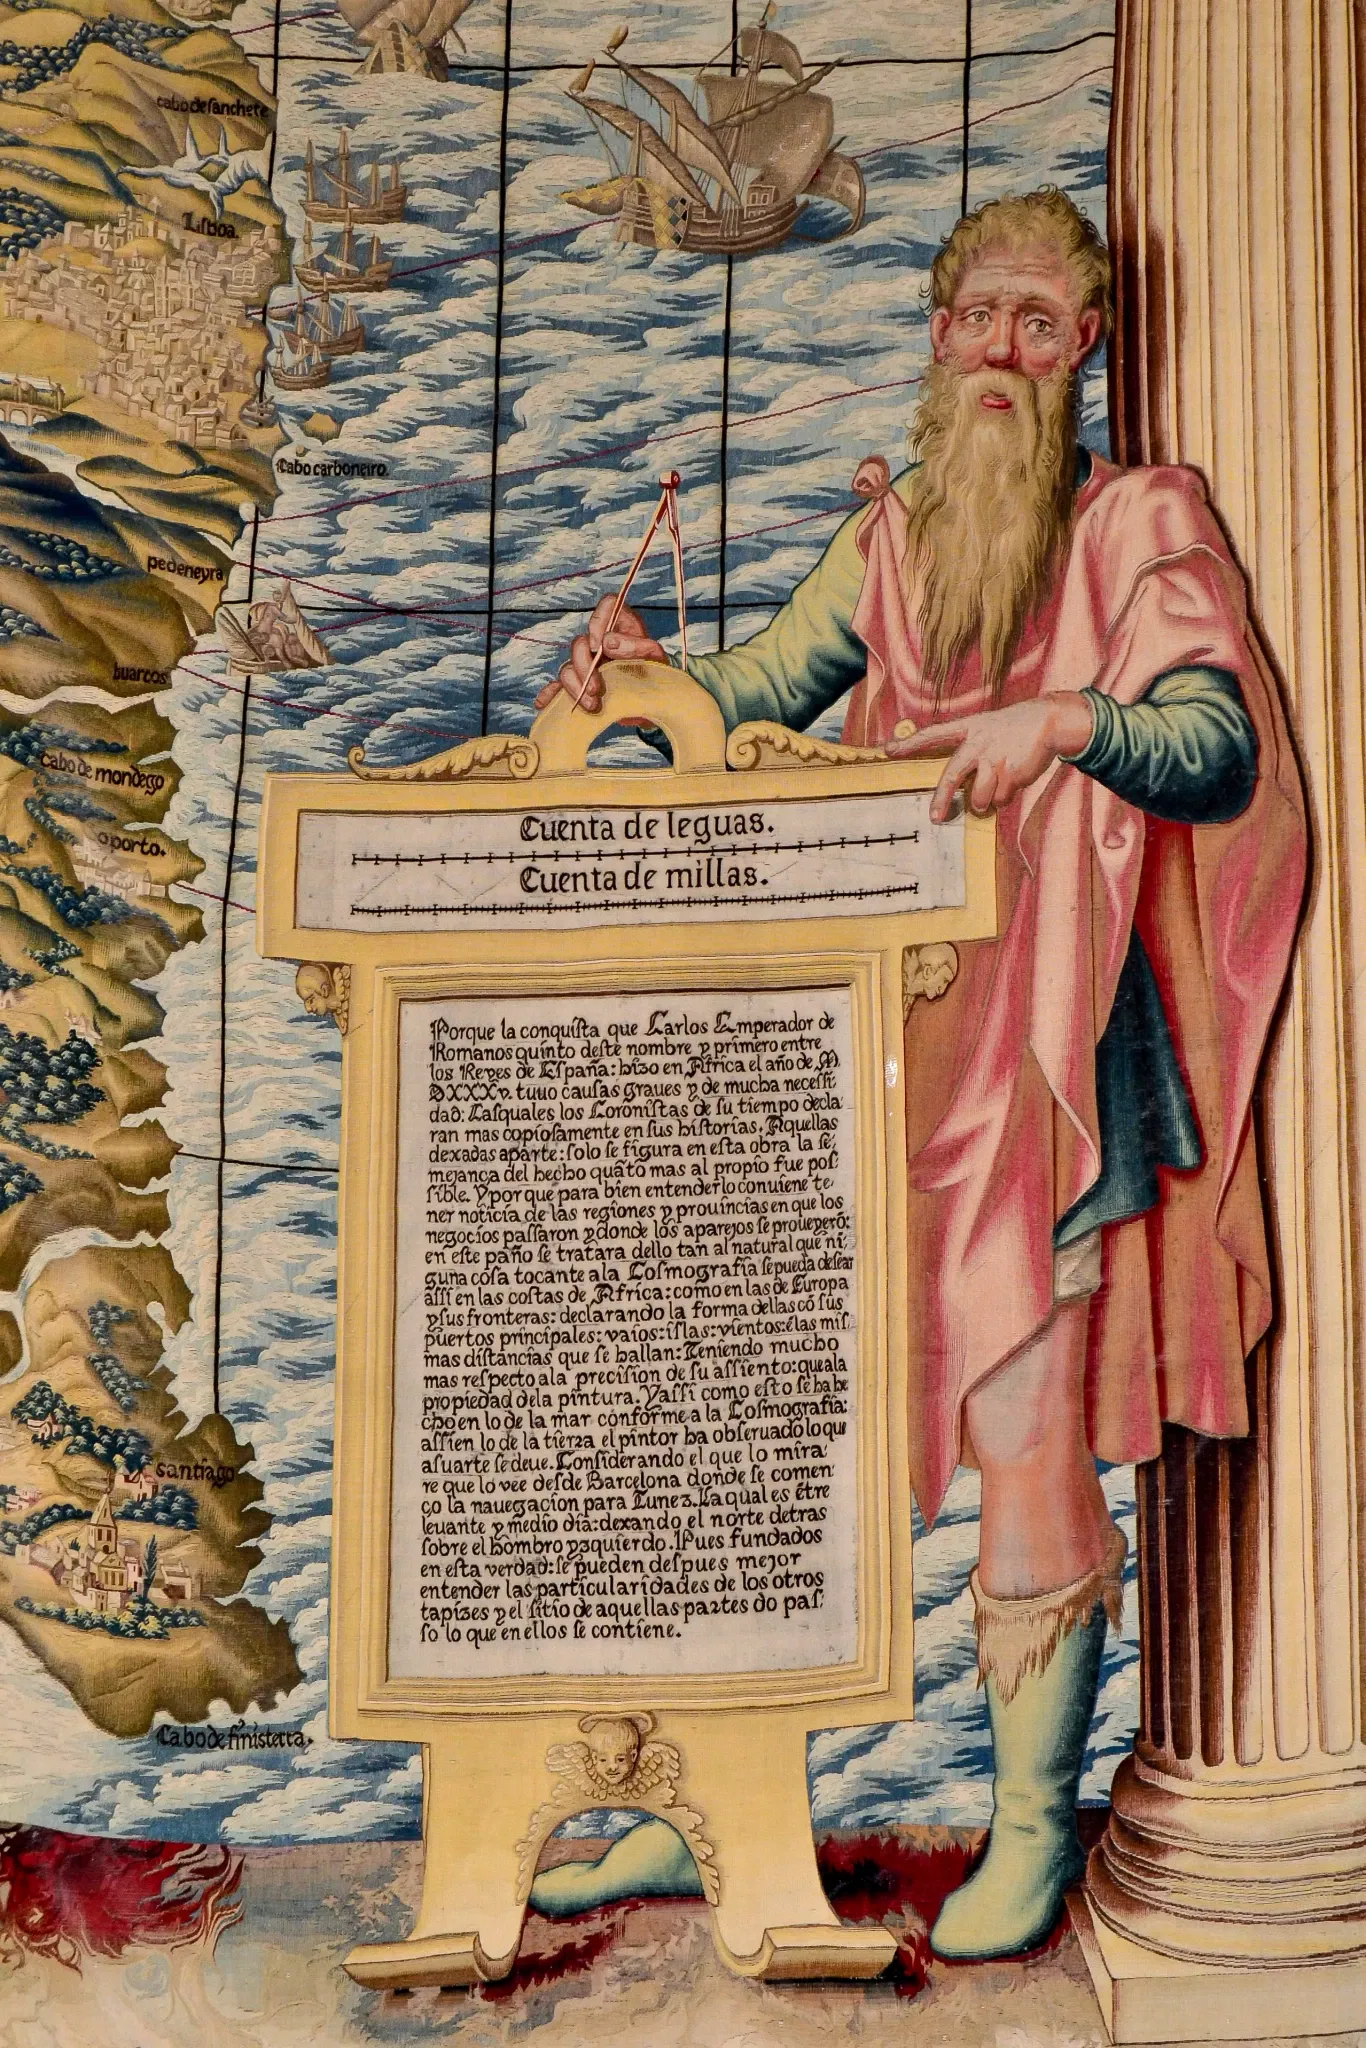 cabo de sanchete
Lisboa.
Cabo carboneiro.
pedeneyra
buarcos
cabo de mondego
oporto.
santiago
Cabo de finisterra.
Cuenta de leguas.
Cuenta de millas.
Porque la conquista que Carlos Emperador de
Romanos quinto deste nombre y primero entre
los Reyes de España: hizo en Africa el año de M.
DXXXV. tuuo causas graues y de mucha necessi
dad: Lasquales los Coronistas de su tiempo decla
ran mas copiosamente en sus historias. Aquellas
dexadas aparte: solo se figura en esta obra la se,
mejança del hecho quãto mas al propio fue pos,
sible. Y por que para bien entenderlo conuiene te,
ner noticia de las regiones y prouincias en que los
negocios passaron y donde los aparejos se proueyerõ:
en este paño se tratara dello tan al natural que ni,
guna cosa tocante ala Cosmografia se pueda desear
assi en las costas de Africa: como en las de Europa
y sus fronteras: declarando la forma dellas cõ sus
puertos principales: vaios: islas: vientos: ẽ las mis,
mas distancias que se hallan: Teniendo mucho
mas respecto ala precision de su assiento: que ala
propiedad dela pintura. Y assi como esto se ha he
cho en lo de la mar conforme a la Cosmografia:
assi en lo de la tierra el pintor ha obseruado lo que
a su arte se deue. Considerando el que lo mira
re que lo vee desde Barcelona donde se comen,
ço la nauegacion para Tunez. La qual es ẽtre
leuante y medio dia: dexando el norte detras
sobre el hombro yzquierdo. Pues fundados
en esta verdad: se pueden despues mejor
entender las particularidades de los otros
tapizes y el sitio de aquellas partes do pas,
so lo que en ellos se contiene.